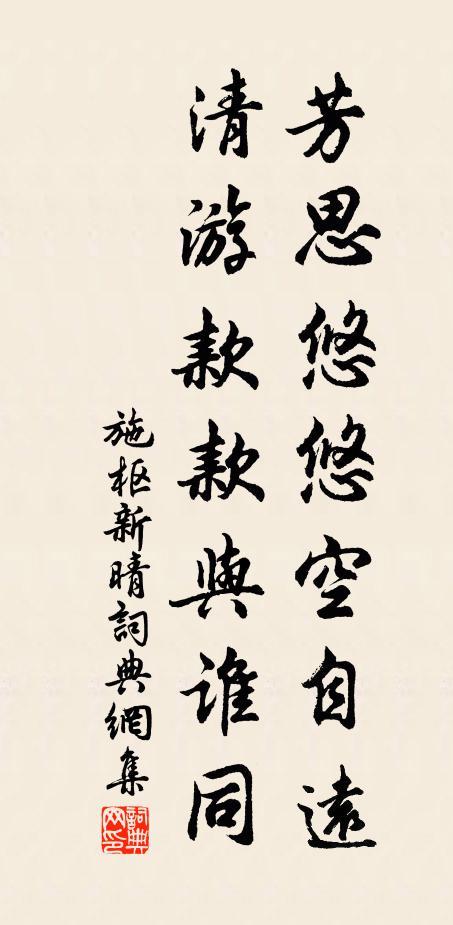 芳思悠悠空自遠
清游款款與誰同
施枢新晴詞典網集
詞典網印